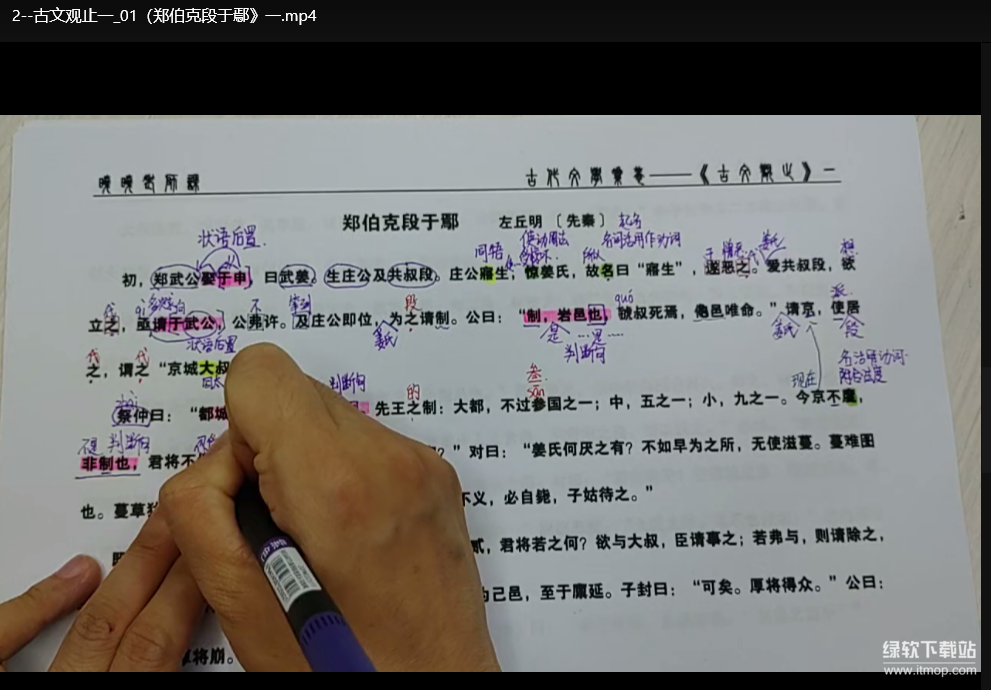 2--古文观止一_01（郑伯克段于鄢》一.mp4
晓晓老师课
古代文学渠道——《古文观止》一
郑伯克段于鄢 左丘明 〔先秦〕 起名
状语后置
同牾 使动用法 名词活用作动词
初，郑武公娶于申，曰武姜。生庄公及共叔段。庄公寤生，惊姜氏，故名曰“寤生”，遂恶之。爱共叔段，欲
立之，亟请于武公，公弗许。及庄公即位，为之请制。公曰：“制，岩邑也，虢叔死焉，佗邑唯命。”请京，使居
状语后置 姜氏 是 判断句 姜氏 段
之，谓之“京城大叔
判断句 的 叁 sān 现在 名词活用动词
祭仲曰：“都城
先王之制：大都，不过参国之一；中，五之一；小，九之一。今京不度，
不是 判断句
非制也，君将不
？”对曰：“姜氏何厌之有？不如早为之所，无使滋蔓。蔓难图
也。蔓草犹
不义，必自毙，子姑待之。”
贰，君将若之何？欲与大叔，臣请事之；若弗与，则请除之，
为己邑，至于廪延。子封曰：“可矣。厚将得众。”公曰：
将崩。
绿软下载站
www.itmop.com